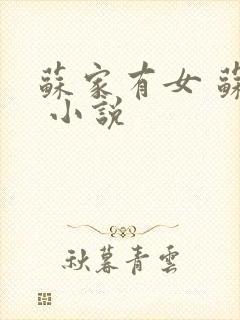 蘇家有女 蘇
小說
秋暮青雲